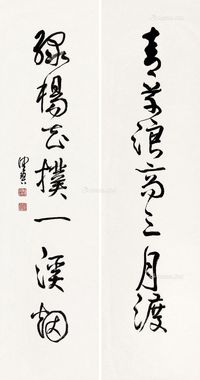 青草浪高三月渡
绿杨花扑一溪烟